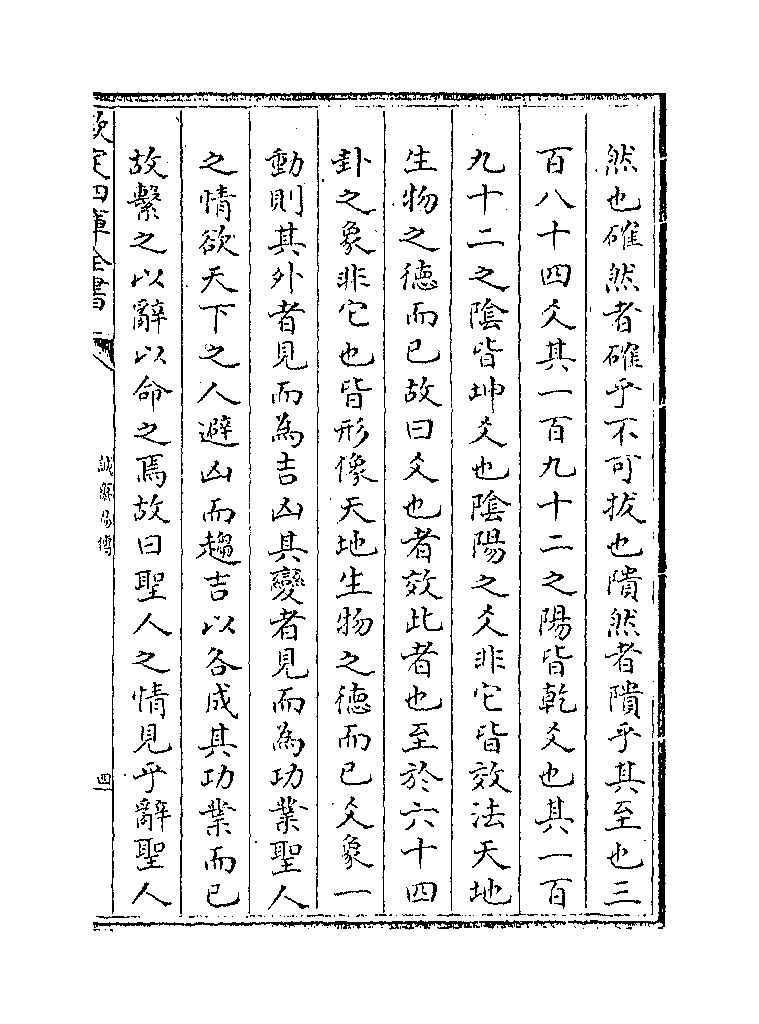 然也確然者確乎不可拔也隤然者隤乎其至也三
百八十四爻其一百九十二之陽皆乾爻也其一百
九十二之陰皆坤爻也陰陽之爻非它皆效法天地
生物之德而已故曰爻也者效此者也至於六十四
卦之象非它也皆形像天地生物之德而已爻象一
動則其外者見而為吉凶其變者見而為功業聖人
之情欲天下之人避凶而趨吉以各成其功業而已
故繫之以辭以命之焉故曰聖人之情見乎辭聖人
欽定四庫全書
誠齋易傳
四